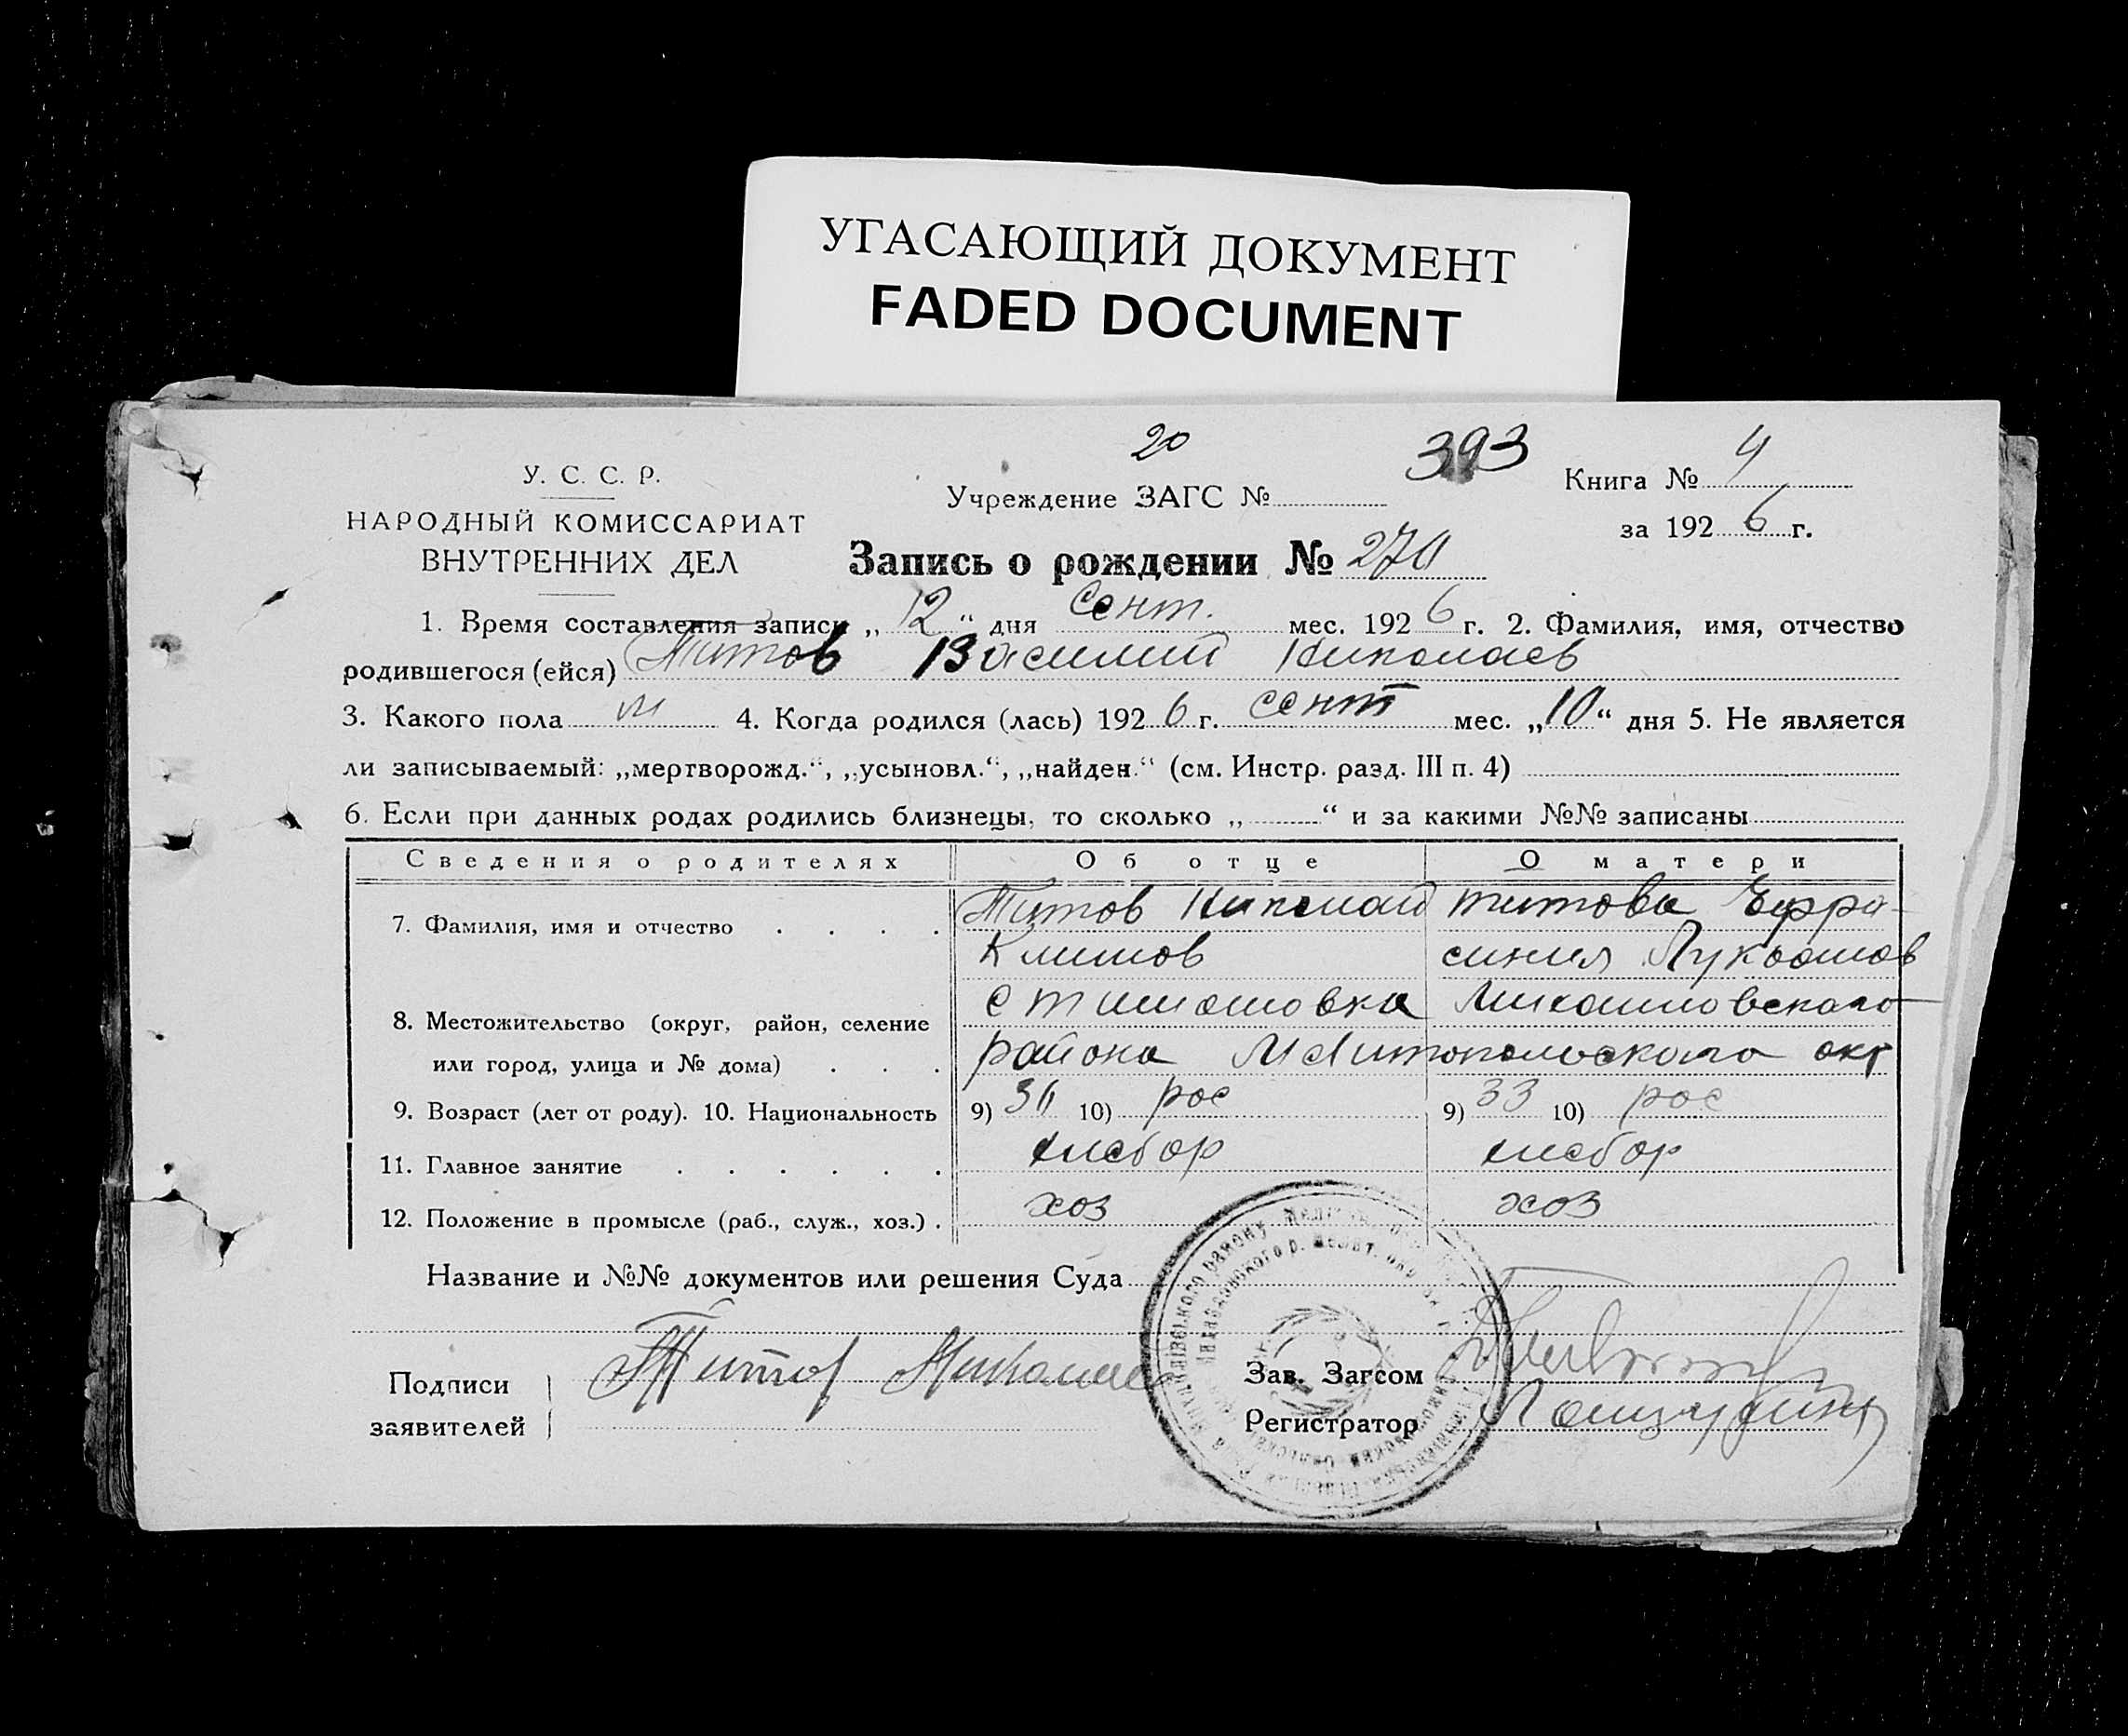 УГАСАЮЩИЙ ДОКУМЕНТ
FADED DOCUMENT
20
393
У. С. С. Р.
НАРОДНЫЙ КОМИССАРИАТ
ВНУТРЕННИХ ДЕЛ
Учреждение ЗАГС №
Книга № 4
за 1926 г.
Запись о рождении №
1. Время составления записи „12“ дня сент. мес. 1926 г. 2. Фамилия, имя, отчество
родившегося (ейся) Титов Василий Николаев
3. Какого пола м 4. Когда родился (лась) 1926 г. сент мес. „10“ дня 5. Не является
ли записываемый: „мертворожд.“, „усыновл.“, „найден.“ (см. Инстр. разд. III п. 4)
6. Если при данных родах родились близнецы, то сколько „ “ и за какими №№ записаны
Сведения о родителях Об отце О матери
7. Фамилия, имя и отчество Титов Николай Климов Титова Ефросиния
8. Местожительство (округ, район, селение
или город, улица и № дома) района Мелитопольского окр
9. Возраст (лет от роду). 10. Национальность 9) 10) рос 9) 33 10) рос
11. Главное занятие хлебор хлебор
12. Положение в промысле (раб., служ., хоз.) хоз хоз
Название и №№ документов или решения Суда
Подписи
заявителей
Титов Николай
Зав. Загсом
Регистратор